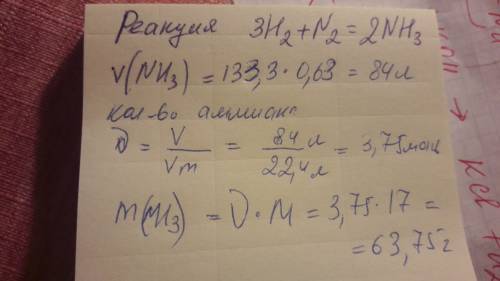 Реакция 3H₂+N₂=2NH₃
V(NH₃)=133,3·0,63=84л
кол-во аммиака
ν = V/Vm = 84л/22,4л = 3,75моль
m(NH₃) = ν·M = 3,75·17 =
=63,75г
KCl